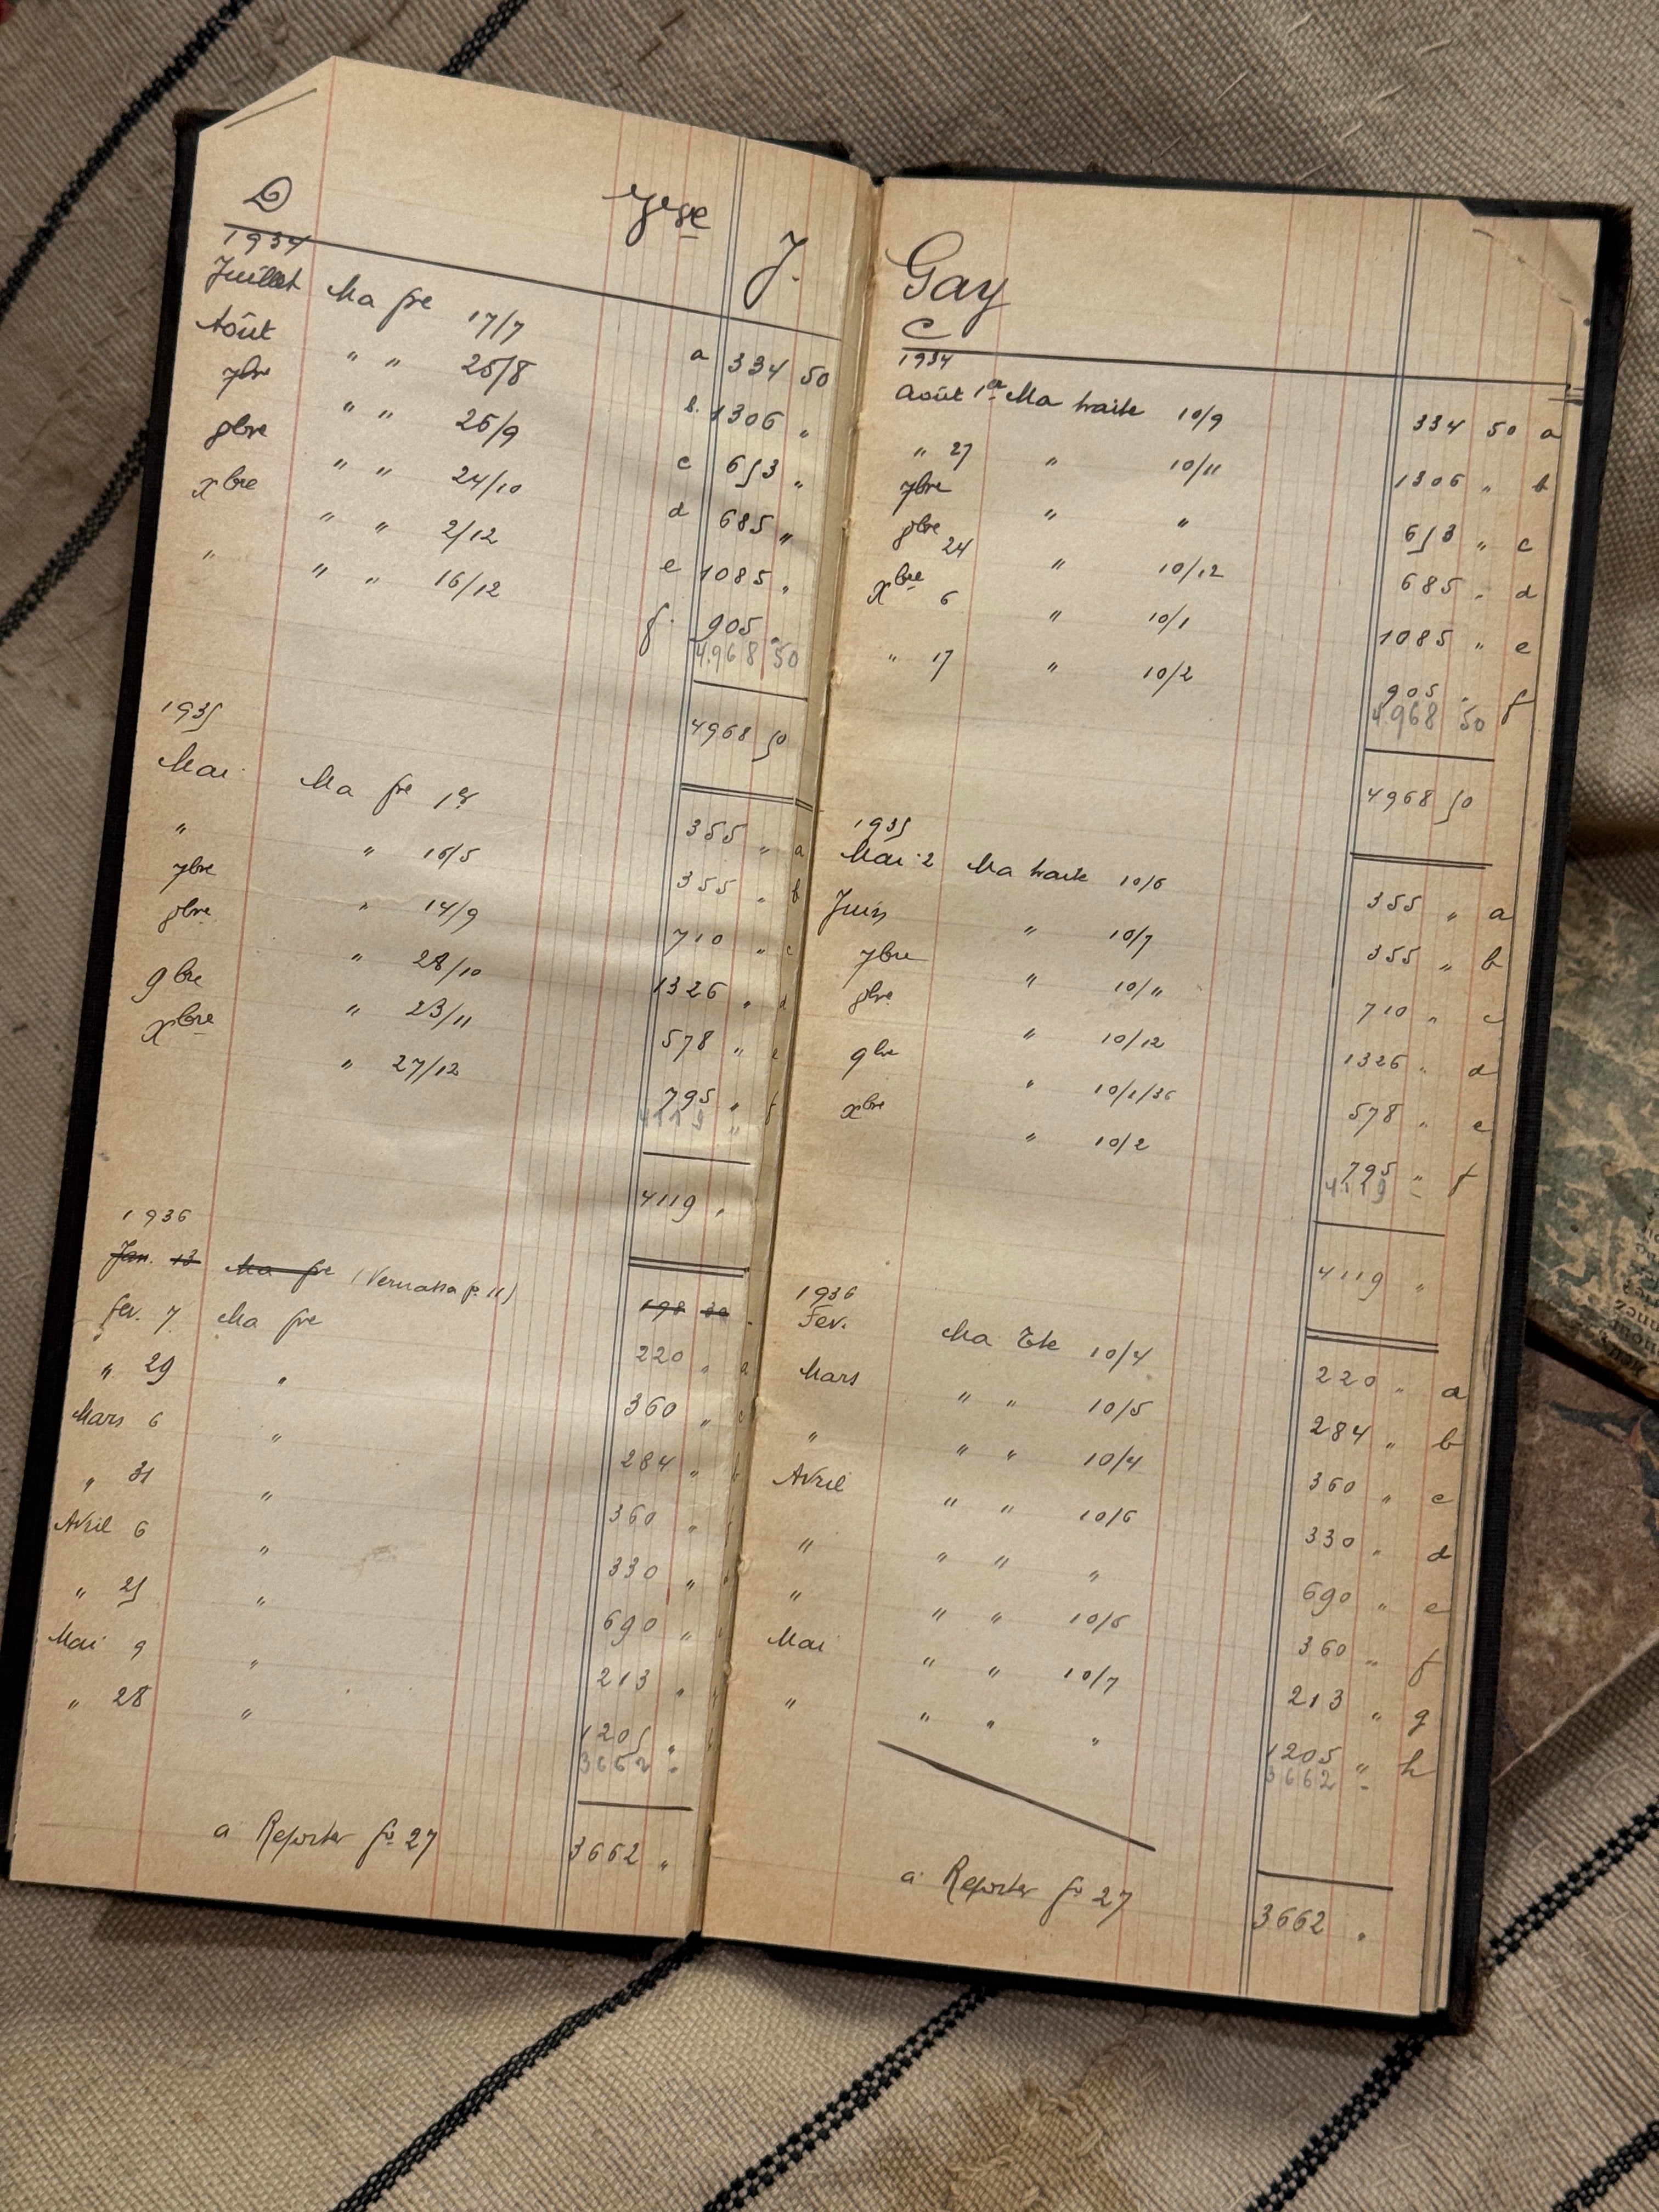 D
J.
1934
Juillet Ma fre 17/7 a 334 50
Août " " 25/8 b. 1306 "
7bre " " 26/9 c 653 "
8bre " " 24/10 d 685 "
Xbre " " 2/12 e 1085 "
" " " 16/12 f. 905 "
4.968 50
4968 50
1935
Mai Ma fre 1er 355 " a
" " 16/5 355 " b
7bre " 14/9 710 " c
8bre " 28/10 1326 " d
9bre " 23/11 578 " e
Xbre " 27/12 795 " f
4119 "
4119 "
1936
Jan. 13 Ma fre (Vernassa p. 11) 198 30
Fev. 7 Ma fre 220 " a
" 29 " 360 " c
Mars 6 " 284 " b
" 31 " 360 "
Avril 6 " 330 "
" 25 " 690 "
Mai 9 " 213 "
" 28 " 1205 "
3662 "
a Reporter fo 27 3662 "
Gay
C
1934
Août 1er Ma traite 10/9 334 50 a
" 27 " 10/11 1306 " b
7bre " " 653 " c
8bre 24 " 10/12 685 " d
Xbre 6 " 10/1 1085 " e
" 17 " 10/2 905 " f
4.968 50
4968 50
1935
Mai 2 Ma traite 10/6 355 " a
Juin " 10/7 355 " b
7bre " 10/11 710 " c
8bre " 10/12 1326 " d
9bre " 10/1/36 578 " e
Xbre " 10/2 795 " f
4.119 -
4119 "
1936
Fev. Ma Tte 10/4 220 " a
Mars " " 10/5 284 " b
" " " 10/4 360 " c
Avril " " 10/6 330 " d
" " " " 690 " e
" " " 10/6 360 " f
Mai " " 10/7 213 " g
" " " " 1205 " h
3662 -
a Reporter fo 27 3662 "